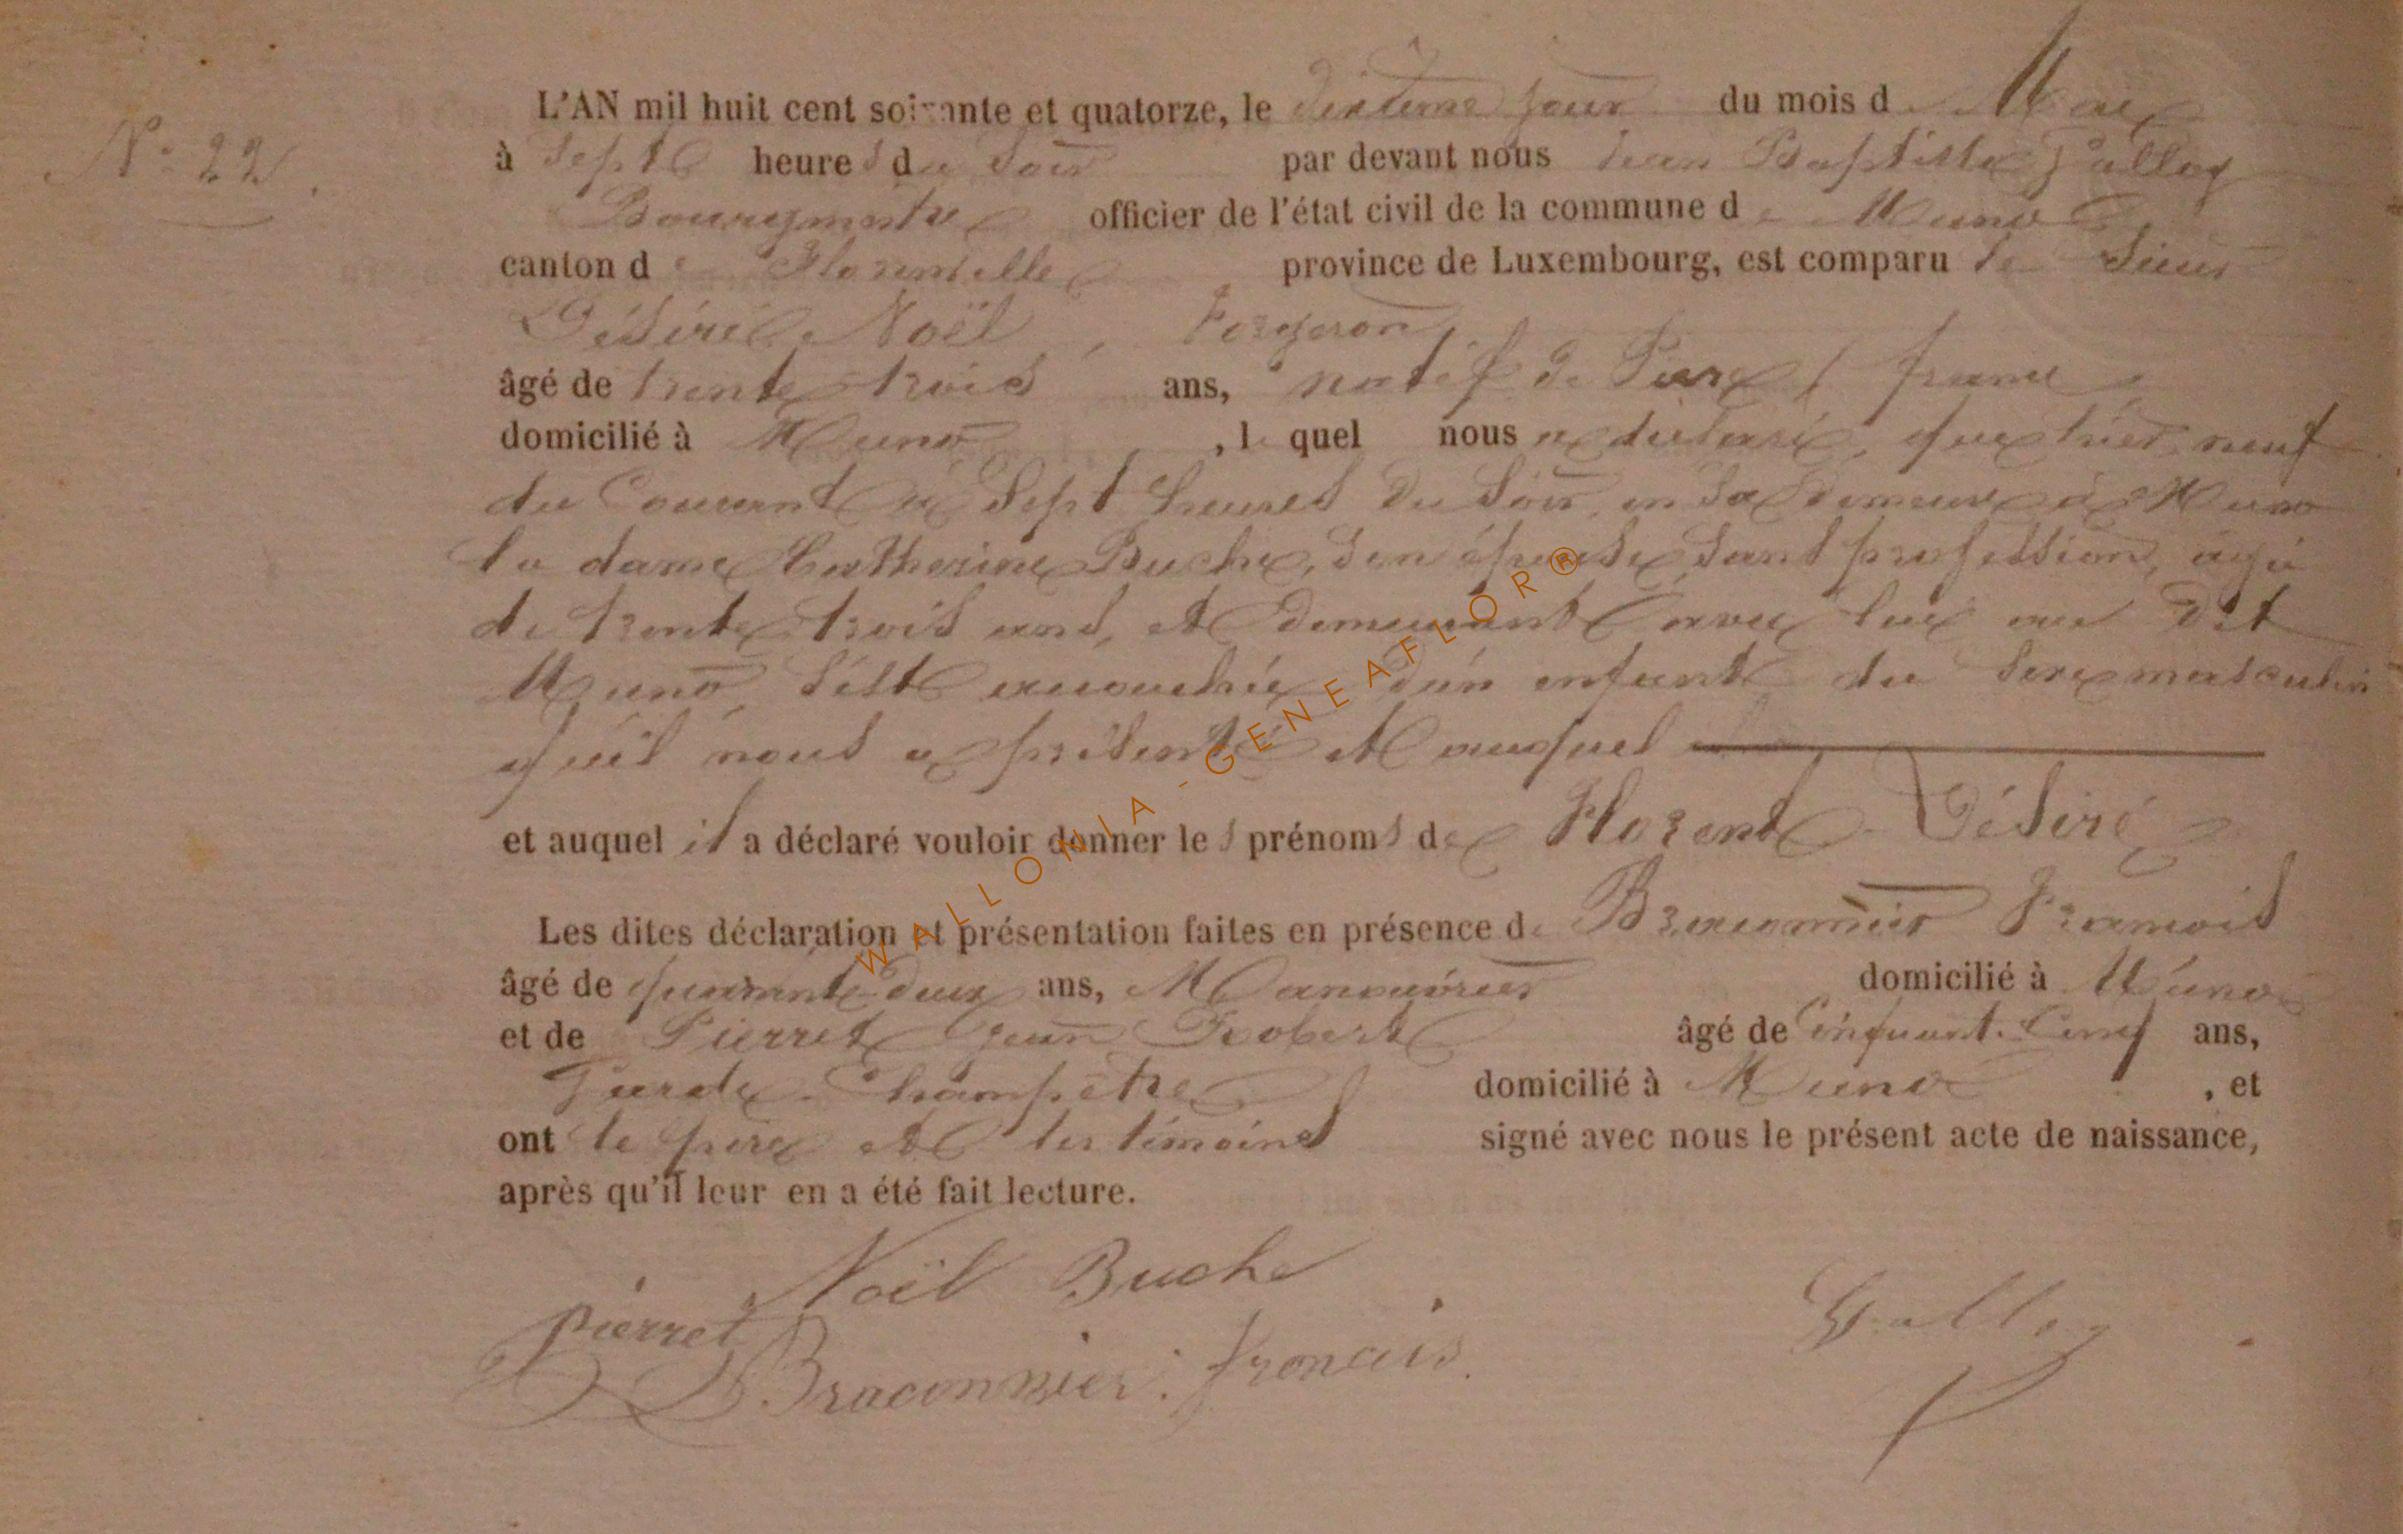 N° 22.
L'AN mil huit cent soixante et quatorze, le dixième jour du mois de Mai
à Sept heures du Soir par devant nous Jean Baptiste Galloy
Bourgmestre officier de l'état civil de la commune de Muno
canton de Florenville province de Luxembourg, est comparu le Sieur
Désiré Noël, Forgeron
âgé de trente trois ans, natif de ( france
domicilié à Muno, lequel nous a déclaré, que hier neuf
du Courant à Sept heures du Soir, en Sa demeure à Muno
la dame Catherine Buche, Son épouse, Sans profession, âgée
de trente trois ans, et demeurant avec lui au dit
Muno, S'est accouchée d'un enfant du Sexe masculin
qu'il nous a présenté et auquel
et auquel il a déclaré vouloir donner les prénoms de Florent Désiré
Les dites déclaration et présentation faites en présence de Braconnier François
âgé de quarante-deux ans, Manouvrier domicilié à Muno
et de Pierret Jean Robert âgé de Cinquante Cinq ans,
Garde Champêtre domicilié à Muno, et
ont le père et les témoins signé avec nous le présent acte de naissance,
après qu'il leur en a été fait lecture.
Noël Buche
Pierret
Braconnier. françois.
Galloy
WALLONIA - GENEAFLOR®